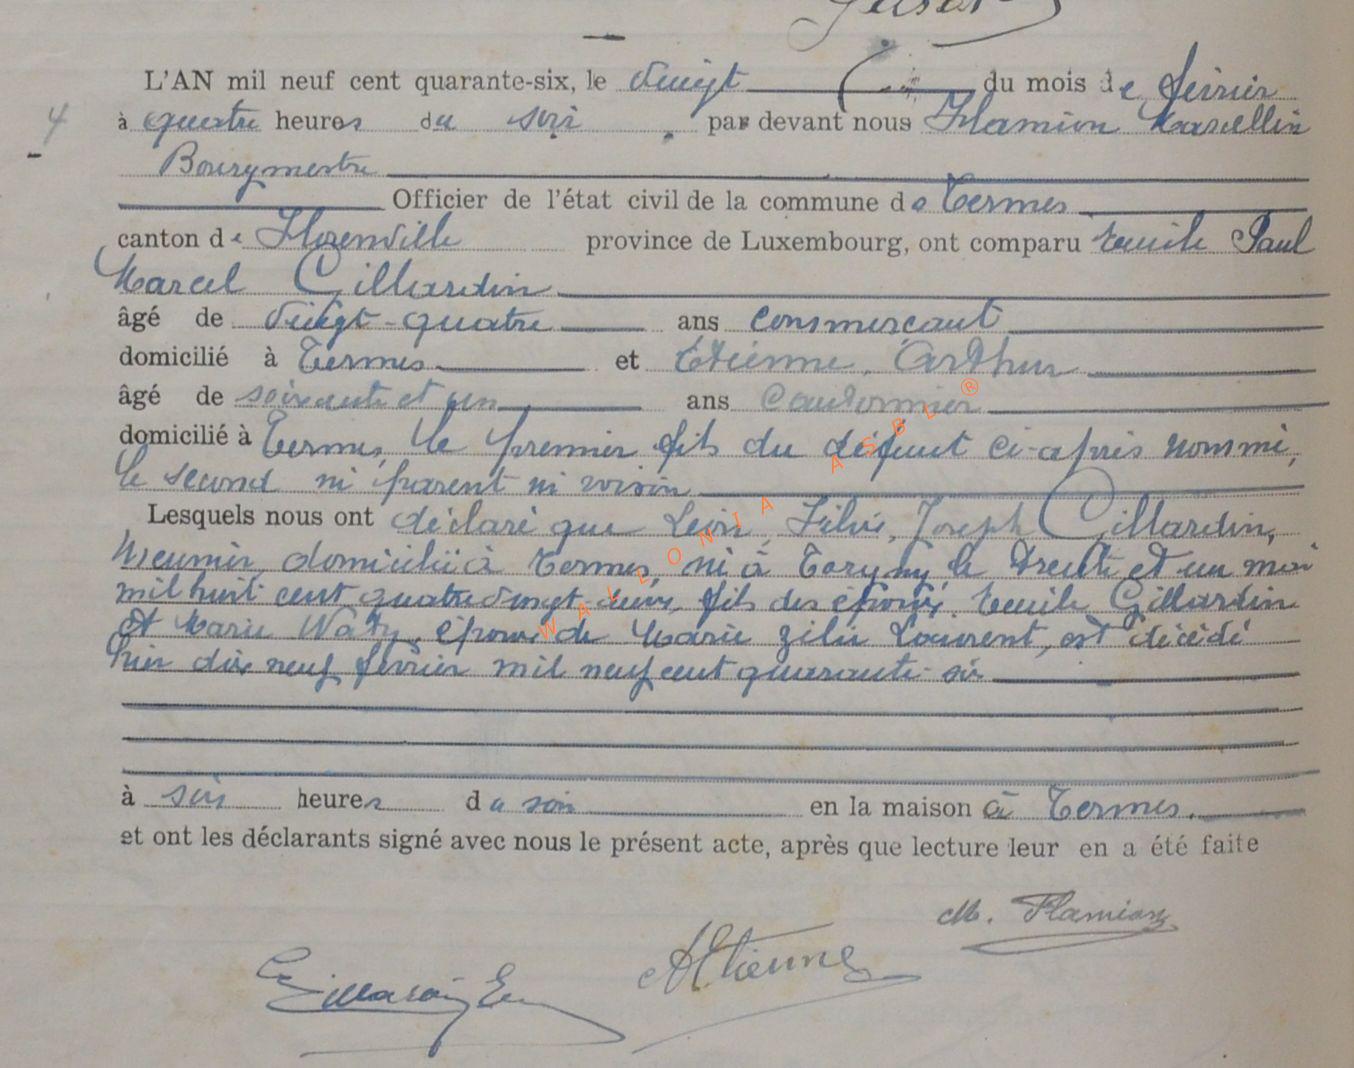 L'AN mil neuf cent quarante-six, le vingt du mois de février
4
à quatre heures du soir par devant nous Flamion Marcellin
Bourgmestre
Officier de l'état civil de la commune de Termes
canton de Florenville province de Luxembourg, ont comparu Emile Paul
Marcel Gillardin
âgé de vingt-quatre ans commerçant
domicilié à Termes et Etienne, Arthur
âgé de soixante et un ans Cantonnier
domicilié à Termes, le premier fils du défunt ci-après nommé,
le second ni parent ni voisin
Lesquels nous ont déclaré que Léon, Joseph Gillardin,
Meunier, domicilié à Termes, né à Torgny, le trente et un mai
mil huit cent quatre vingt deux, fils des époux Emile Gillardin
et Marie Waty, époux de Marie Zélie Laurent, est décédé
hier dix neuf février mil neuf cent quarante-six
à six heures du soir en la maison à Termes.
et ont les déclarants signé avec nous le présent acte, après que lecture leur en a été faite
M. Flamion
AEtienne
Gillardin E
WALLONIA ASBL ®